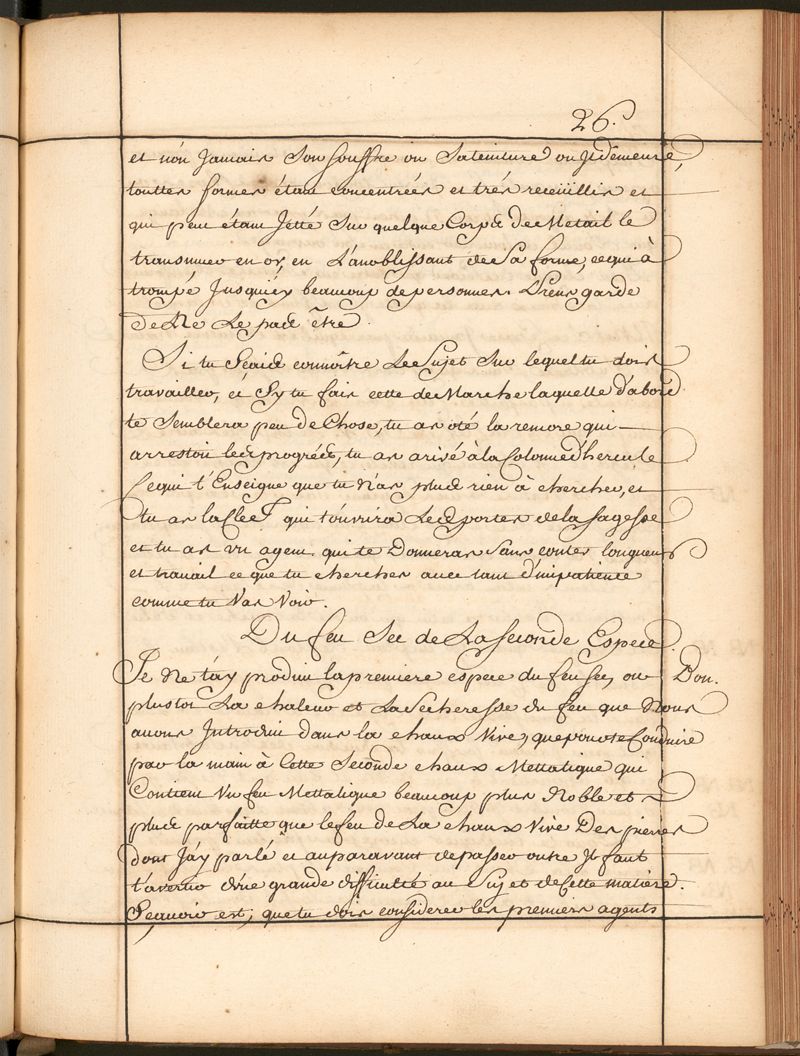 26.
et nón Jamais Son Souffre ou Sateinture ou Jl demeure,
touttes formes étant concentrées et trés receüillis et
qui peu étant Jetté Sur quelque Corps de Metail le
transmuer en or, en L'anoblissant de Sa forme, ce qui à
trompé Jusqu'icy beaucoup de personnes. Prens garde
De Ne Le pas être.
Si tu Scais connoître Le Sujet Sur lequel tu dois
travailler, et Sy tu fais cette deMarche laquelle d'abord
te Semblera peu de Chose, tu as oté la remore qui
arrestoit les progrés, tu as arivé à la Colonne d'hercule
Ce qui t'Enseigne que tu N'as plus rien à chercher, et
tu as la Clef qui t'ouvrira Les portes de la Sagesse
et tu as un agent qui te Donneras Sans contes longueur
et travail ce que tu cherches avec tant d'impatience
comme tu Vas Voir.
Du feu Sec de La Seconde Espece.
Je Ne t'ay produit la premiere espece du feu Sec, ou Don.
plustot La chaleur et La Secheresse du feu que Nous
avons Introduit dans la chaux Vive, que pour te Conduire
par la main à Cette Seconde chaux Mettalique qui
Contient Un feu Mettalique beaucoup plus Noble et
plus parfaitte que le feu de La chaux Vive Des pierres
dont J'ay parlé et auparavant de passer outre Jl faut
t'avertir d'ûne grande difficulté au Sujet de Cette matiére.
Scauoir est; que tu dois considerer les premiers agents